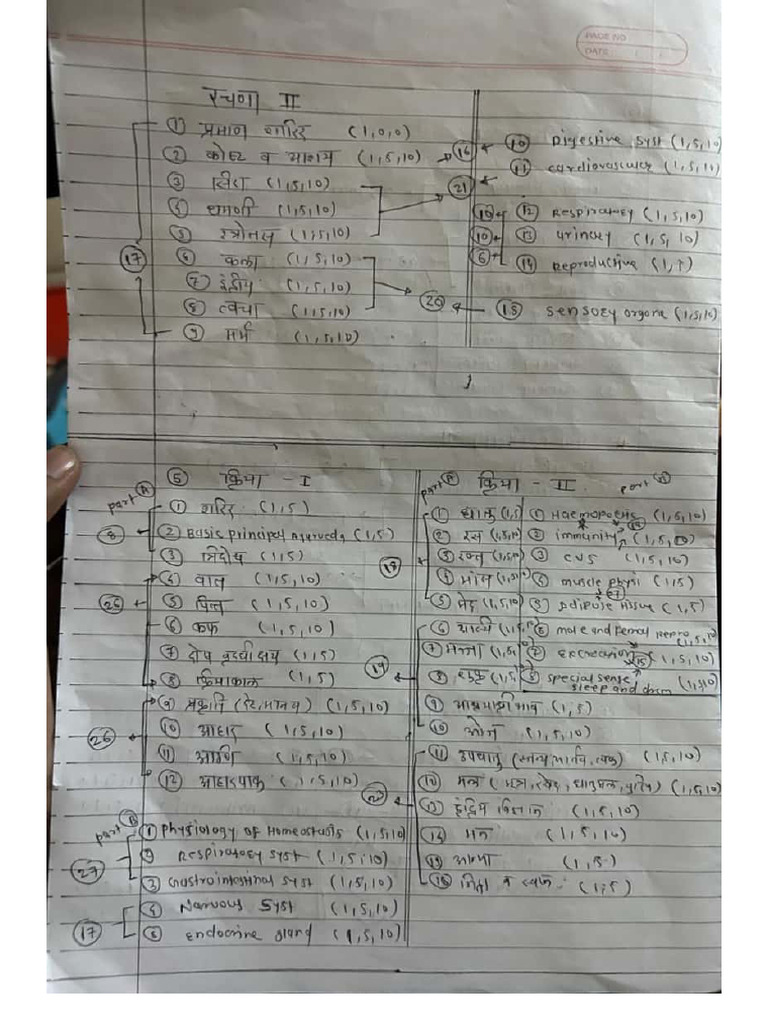 PAGE NO
DATE:
रचणा II
① प्रमाण शारिर (1,0,0)
② कोष्ट व आशय (1,5,10) → 16
③ सिरा (1,5,10)
④ धमणी (1,5,10)
⑤ स्त्रोतस (1,5,10)
⑥ कला (1,5,10)
⑦ इंद्रीय (1,5,10)
⑧ त्वचा (1,5,10)
⑨ मर्म (1,5,10)
17
⑩ Digestive syst (1,5,10)
⑪ cardiovascular (1,5,10)
21
⑫ Respiratory (1,5,10)
10
⑬ urinary (1,5,10)
10
⑭ Reproductive (1,5)
6
20
⑮ sensory organs (1,5,10)
⑤ क्रिया - I
part A
① शारिर (1,5)
② Basic principal Ayurveda (1,5)
③ त्रिदोष (1,5)
8
④ वात (1,5,10)
⑤ पित्त (1,5,10)
⑥ कफ (1,5,10)
⑦ दोष वृद्धीक्षय (1,5)
⑧ क्रियाकाल (1,5)
⑨ प्रकृति (देह,मानस) (1,5,10)
⑩ आहार (1,5,10)
⑪ अग्नी (1,5,10)
⑫ आहारपाक (1,5,10)
26
part B
① Physiology of Homeostasis (1,5,10)
② Respiratory syst (1,5,10)
③ Gastrointestinal syst (1,5,10)
27
④ Narvous syst (1,5,10)
⑤ Endocrine gland (1,5,10)
17
part A
क्रिया - II
① धातु (1,5)
② रस (1,5,10)
③ रक्त (1,5,10)
④ मांस (1,5,10)
⑤ मेद (1,5,10)
⑥ अस्थी (1,5,10)
⑦ मज्जा (1,5,10)
⑧ शुक्र (1,5)
⑨ आश्रयाश्रयी भाव (1,5)
⑩ ओज (1,5,10)
19
⑪ उपधातु (स्तन्य,आर्तव,त्वक) (1,5,10)
⑫ मल (मुत्र,स्वेद,धातुमल,पुरीष) (1,5,10)
⑬ इंद्रिय विज्ञान (1,5,10)
⑭ मन (1,5,10)
⑮ आत्मा (1,5)
⑯ निद्रा व स्वप्न (1,5)
part B
① Haemopoetis (1,5,10)
② immunity (1,5,10)
③ CVS (1,5,10)
④ muscle physi (1,5)
⑤ Adipose tissue (1,5)
⑥ male and femal repro (1,5,10)
⑦ Excreation (1,5,10)
⑧ special sense
sleep and dream (1,5,10)